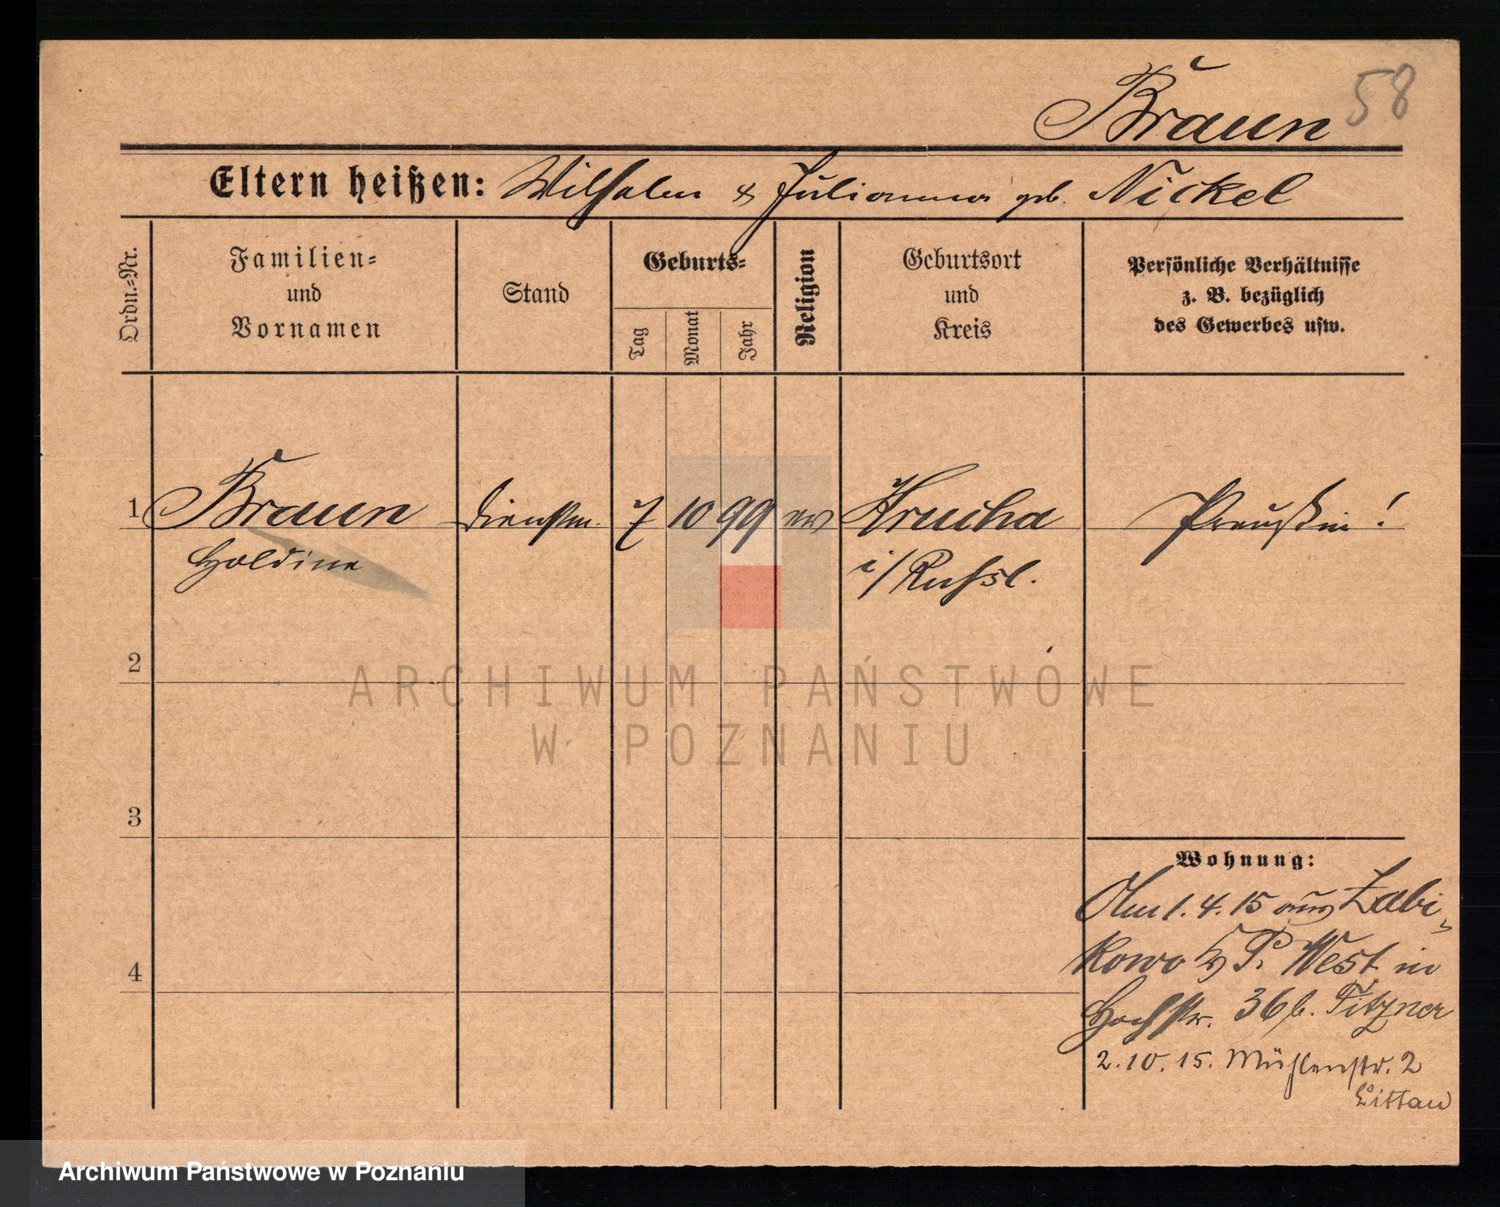 Braun 58
Eltern heißen: Wilhelm & Julianna geb. Nickel
Ordn.-Nr.
Familien-
und
Vornamen
Stand
Geburts-
Tag
Monat
Jahr
Religion
Geburtsort
und
Kreis
Persönliche Verhältnisse
z. B. bezüglich
des Gewerbes usw.
1 Braun Dienstm. 7 10 99 ev Krucha Preußin!
Holdine i/Russl.
2
ARCHIWUM PAŃSTWOWE
W POZNANIU
3
Wohnung:
1.4.15 aus Zabi-
4
kowo P. West in
Hochstr. 36 b. Titzner
2.10.15. Mühlenstr. 2
Littau
Archiwum Państwowe w Poznaniu